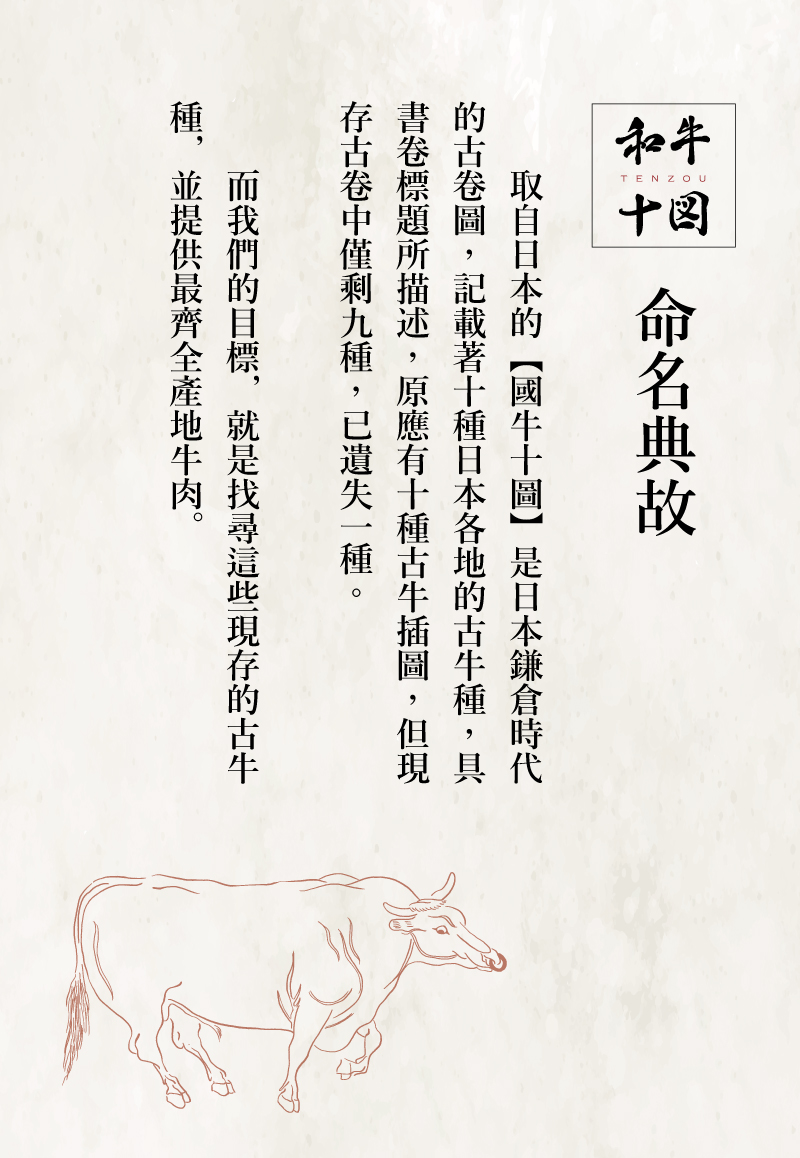 和牛
TENZOU
十図
命名典故
取自日本的【國牛十圖】是日本鎌倉時代
的古卷圖，記載著十種日本各地的古牛種，具
書卷標題所描述，原應有十種古牛插圖，但現
存古卷中僅剩九種，已遺失一種。
而我們的目標，就是找尋這些現存的古牛
種，並提供最齊全產地牛肉。